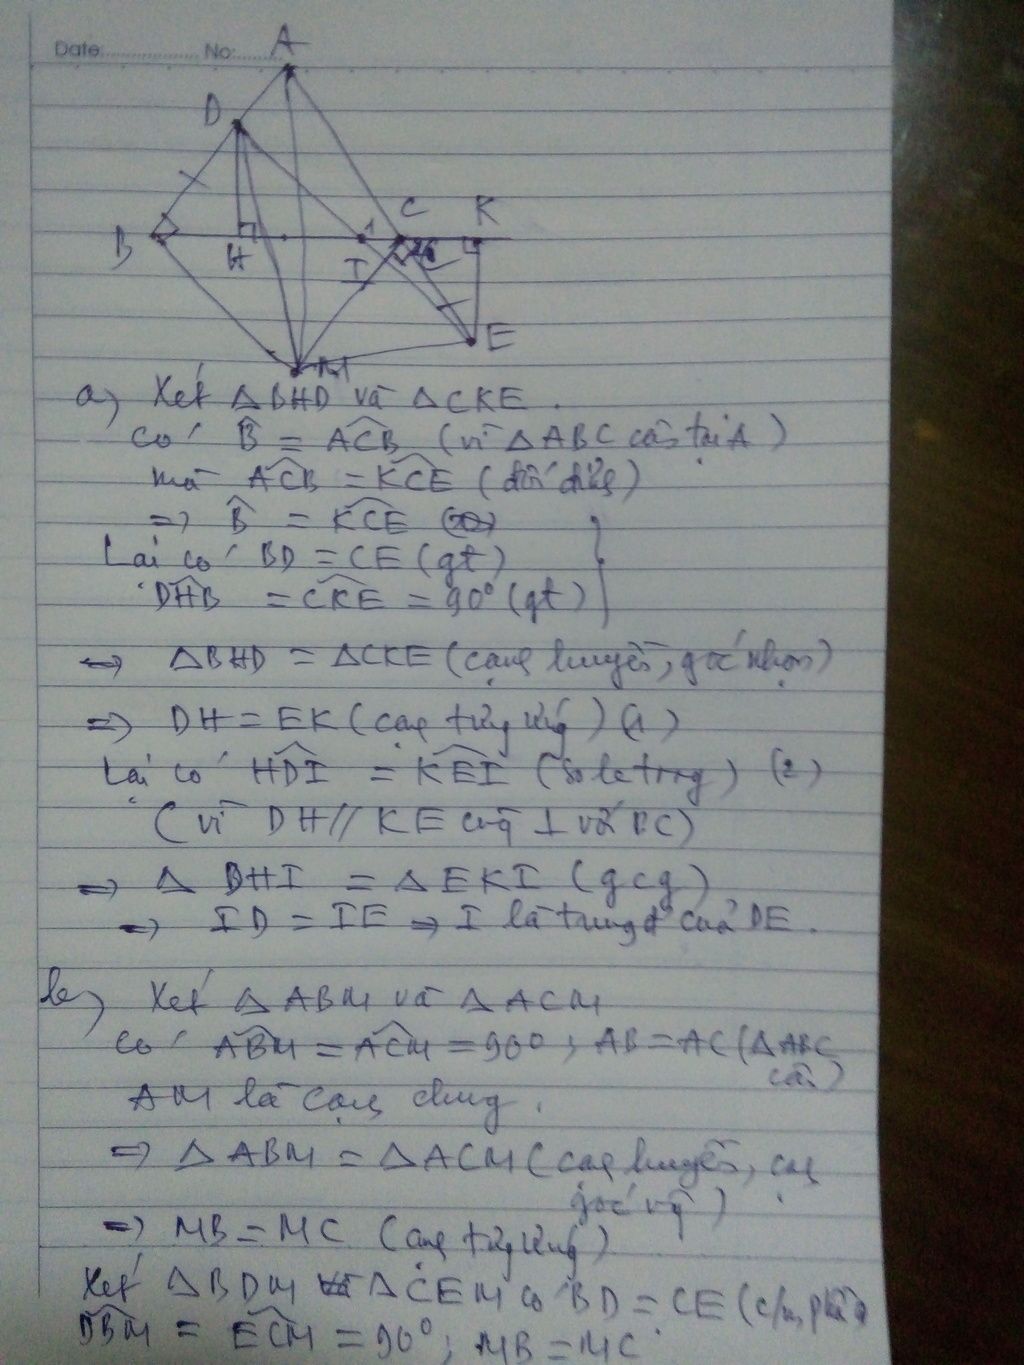 Date: No:
A
D
B H I 1 C K
E
M
a) Xét ΔBHD và ΔCKE.
có B̂ = ACB̂ (vì ΔABC cân tại A)
mà ACB̂ = KCÊ (đối đỉnh)
=> B̂ = KCÊ
Lại có BD = CE (gt)
DHB̂ = CKÊ = 90° (gt)
=> ΔBHD = ΔCKE (cạnh huyền, góc nhọn)
=> DH = EK (cạnh tương ứng) (1)
Lại có HDÎ = KEÎ (so le trong) (2)
(vì DH // KE cùng ⊥ với BC)
=> Δ DHI = Δ EKI (gcg)
=> ID = IE => I là trung đ của DE.
b) Xét Δ ABM và Δ ACM
có ABM̂ = ACM̂ = 90°; AB = AC (ΔABC
cân)
AM là cạnh chung.
=> Δ ABM = Δ ACM (cạnh huyền, cạnh
góc vg)
=> MB = MC (cạnh tương ứng)
Xét ΔBDM và ΔCEM có BD = CE (c/m, phần a
DBM̂ = ECM̂ = 90°; MB = MC